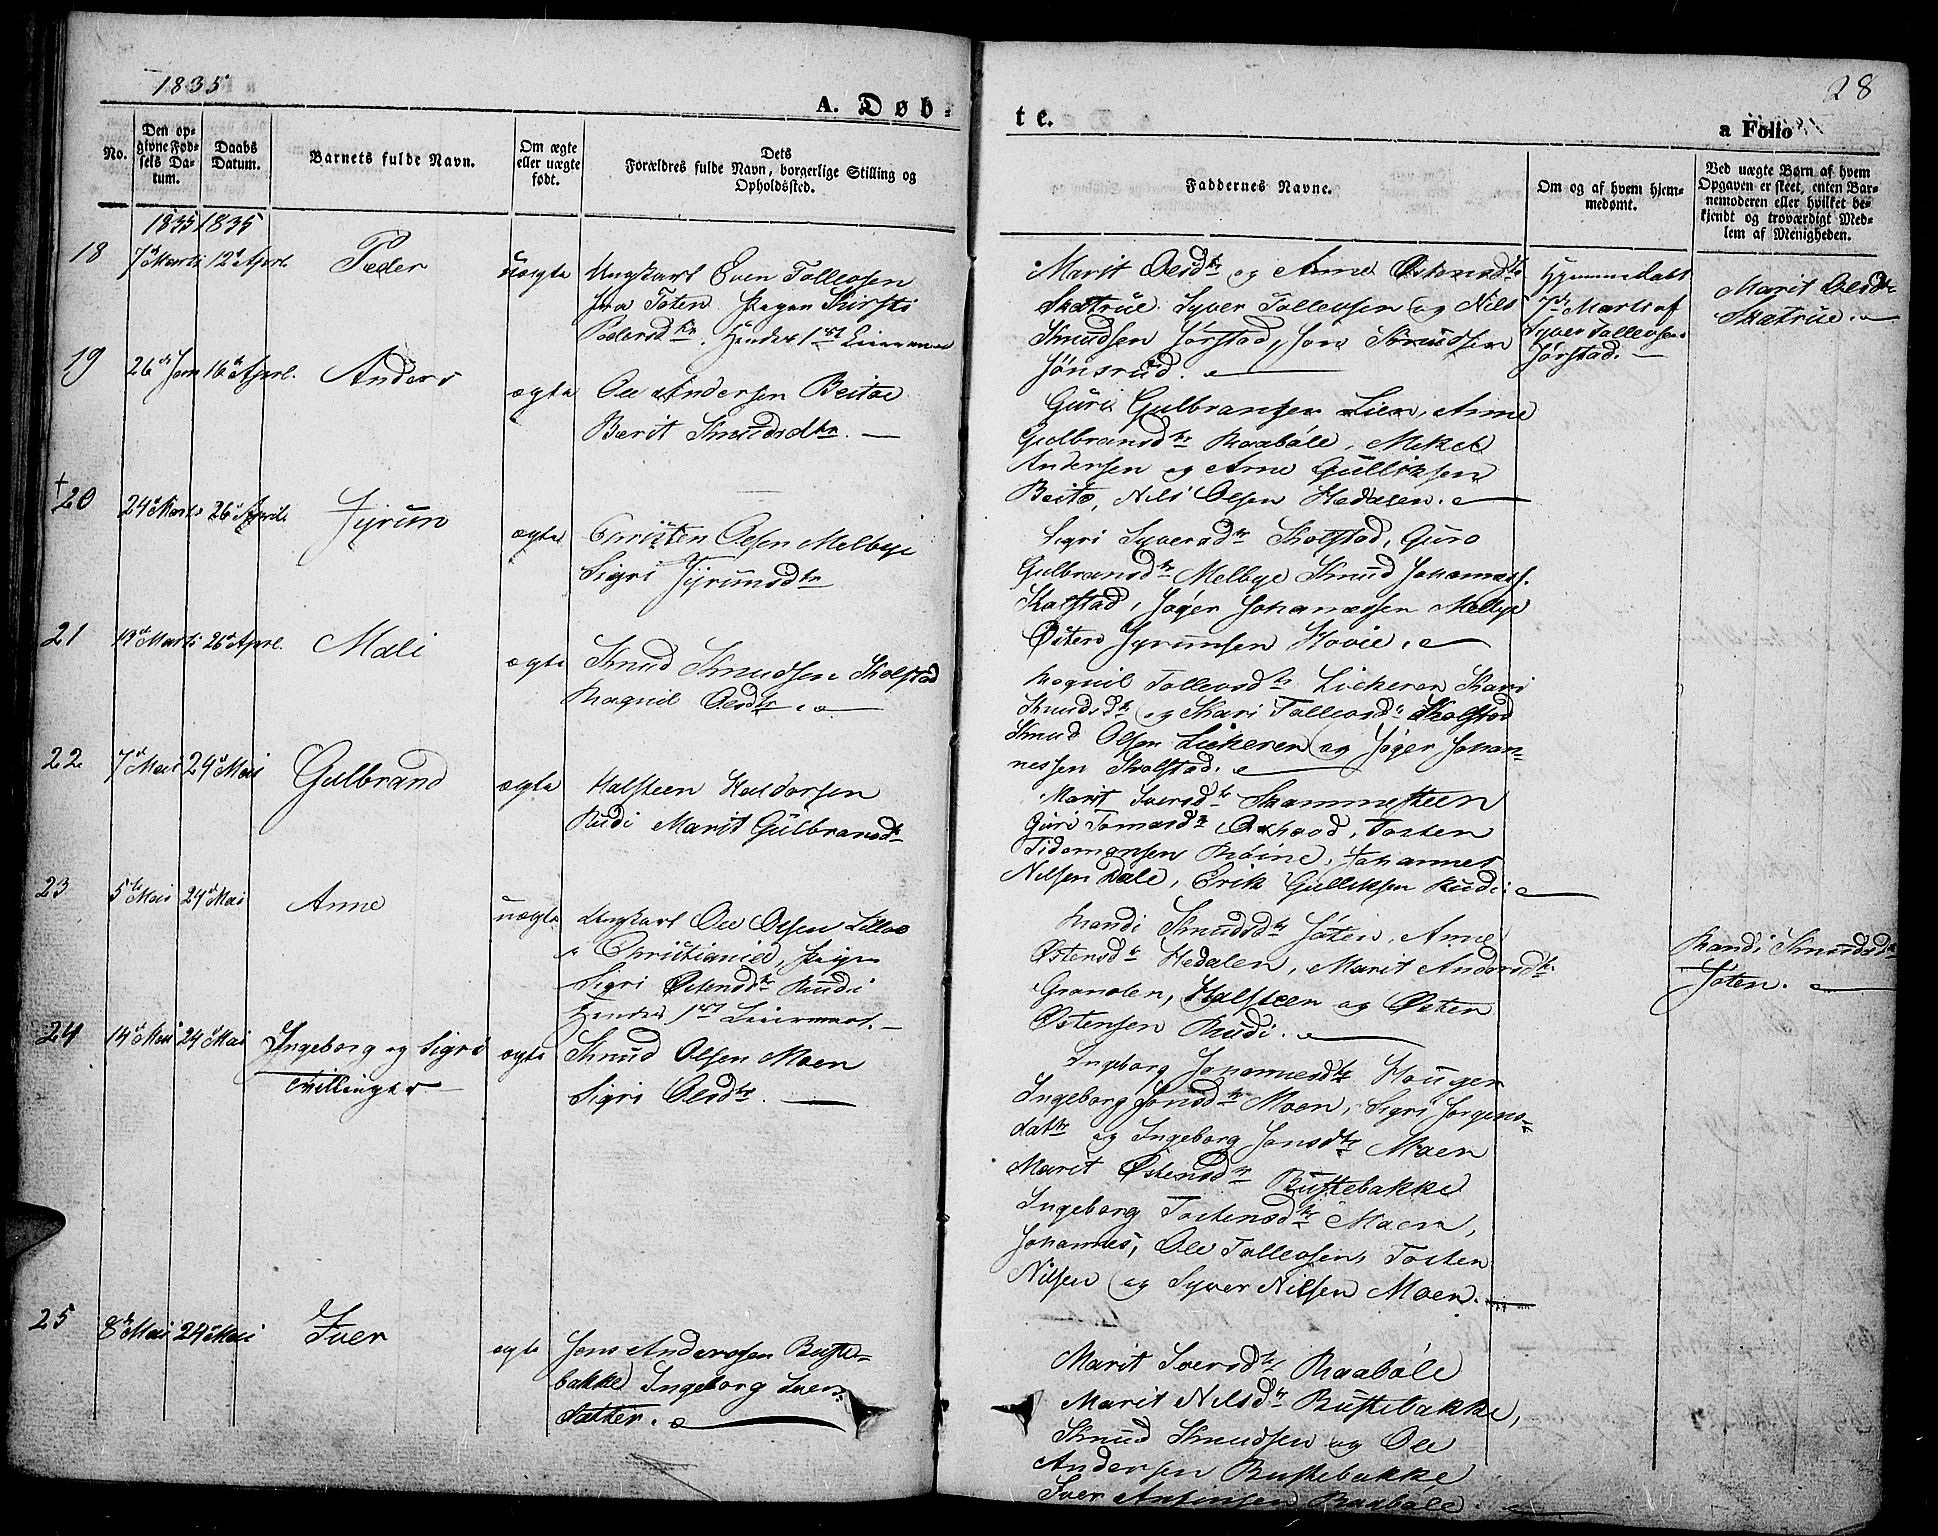 1835
28
A. Døb-
te.
a Folio
No.
Den op-
givne Fød-
sels Da-
tum.
Daabs
Datum.
Barnets fulde Navn.
Om ægte
eller uægte
født.
Dets
Forældres fulde Navn, borgerlige Stilling og
Opholdssted.
Faddernes Navne.
Om og af hvem hjem-
medømt.
Ved uægte Børn af hvem
Opgaven er skeet, enten Bar-
nemoderen eller hvilket be-
kjendt og troværdigt Med-
lem af Menigheden.
1835 1835
18 7d Marts 12d Aprl. Peder uægte Ungkarl Even Tollevsen
fra Toten Pigen Kirsti
Pedersdtr. Hendes 1st Leiermaal
Marit Olsdtr og Anne Østensdtr
Skatrue. Syver Tollevsen og Nils
Knudsen Jørstad, Jon Knudsen
Jønsrud.
Hjemmedøbt
7de Marts af
Syver Tollevsen
Jørstad.
Marit Olsdtr
Skatrue.
19 26d Jan 16d Aprl. Anders ægte Ole Andersen Beitoe
Berit Knudsdtr.
Guri Gulbransen Lien, Anne
Gulbransdtr Raabøle, Mekel
Andersen og Arne Gulliksen
Beito, Nils Olsen Hedalen.
+20 24d Marts 26d Aprils Jyrun ægte Christen Olsen Melbye
Sigri Jyrunsdtr
Sigri Syversdtr Skolstad, Guro
Gulbransdtr Melbye Knud Johanness.
Skolstad, Jøger Johanessen Melbye
Østen Jyrunsen Hovie.
21 19d Marts 26d Aprl. Mali ægte Knud Knudsen Skolstad
Ragnil Olsdtr.
Ragnil Tollevsdtr Lickeren Kari
Knudsdtr og Kari Tollevsdtr Skolstad
Knud Olsen Lickeren og Jøger Johan-
nessen Skolstad.
22 7d Mai 24d Mai Gulbrand ægte Halsteen Haldorsen
Rudi Marit Gulbransdtr
Marit Iversdtr Skammesteen
Guri Tomasdtr Oxhovd, Tosten
Tidemansen Røine, Johannes
Nilsen Dale, Erik Gulliksen Rudi.
23 5te Mai 24d Mai Anne uægte Ungkarl Ole Olsen Lilloe
Christiania, Pigen
Sigri Østensdtr Rudi
Hendes 1st Leiermaal.
Randi Knudsdtr Joten, Anne
Østensdtr Hedalen, Marit Andersdtr
Granolen, Halsteen og Østen
Østensen Rudi.
Randi Knudsdtr
Joten.
24 14d Mai 24d Mai Ingeborg og Sigri
Tvillinger
ægte Knud Olsen Moen
Sigri Olsdtr.
Ingeborg Johannesdtr Houger
Ingeborg Jonsdtr Moen, Sigri Jørgens-
datr og Ingeborg Jonsdtr Moen
Marit Østensdtr Bustebakke
Ingeborg Tostensdtr Moen,
Johannes, Ole Tollevsen, Tosten
Nilsen og Syver Nilsen Moen.
25 8de Mai 24d Mai Iver ægte Jens Andersen Buste-
bakke Ingeborg Ivers-
datter.
Marit Iversdtr Raabøle
Marit Nilsdtr Bustebakke,
Knud Knudsen og Ole
Andersen Bustebakke
Iver Antonsen Raabøle.